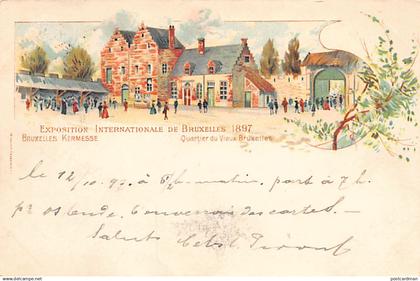 EXPOSITION INTERNATIONALE DE BRUXELLES 1897
BRUXELLES KERMESSE
Quartier du Vieux Bruxelles
le 12/10.97. à 6½ matin, part à 7 h.
pr Ostende. des cartes. —
Saluts
postcardman